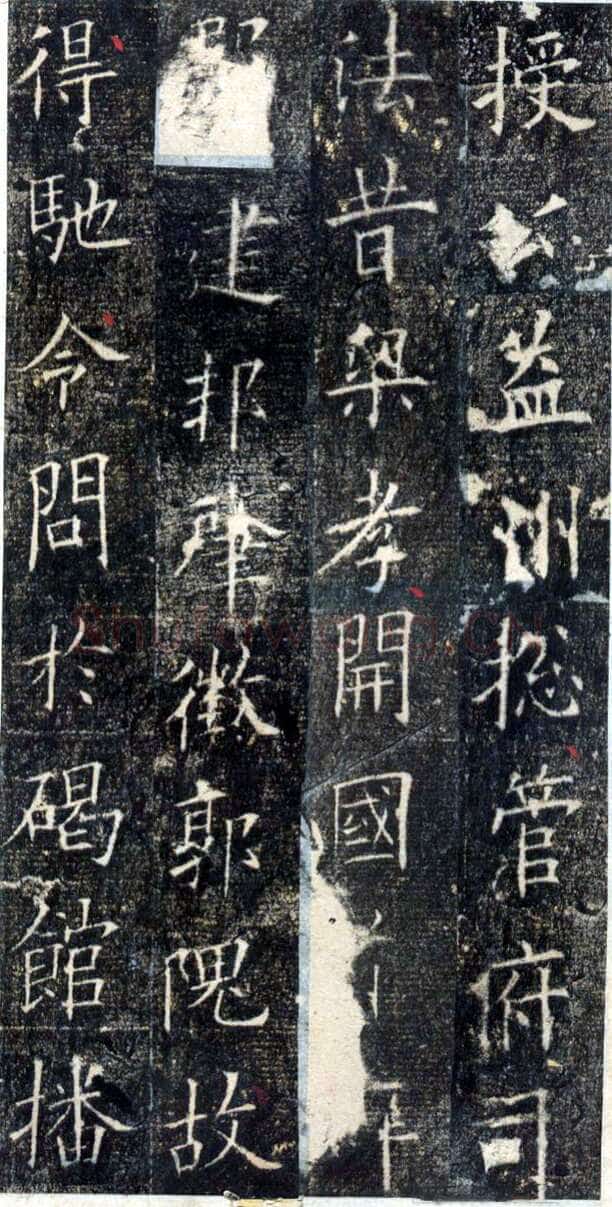 授公益州揔管府司
法昔梁孝開國
建邦肇徵郭隗故
得馳令問於碣館播
Shufawang.CN